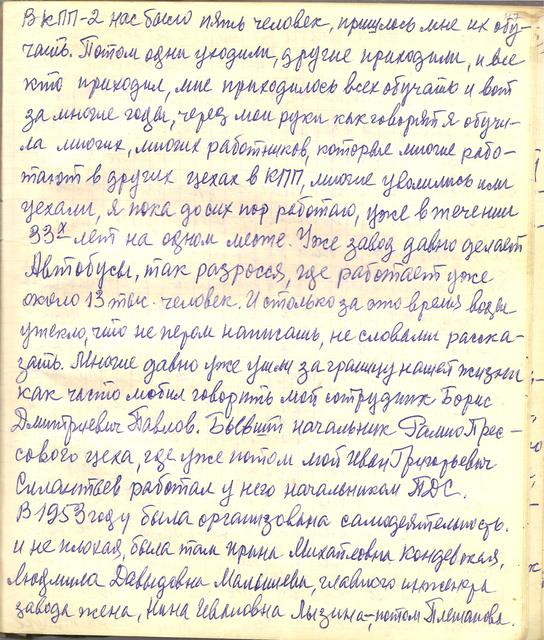 В КПП-2 нас было пять человек, пришлось мне их обу-
чать. Потом одни уходили, другие приходили, и все
кто приходил, мне приходилось всех обучать и вот
за многие годы, через мои руки как говорят я обучи-
ла многих, многих работников, которые многие рабо-
тают в других цехах в КПП, многие уволились или
уехали, я пока до сих пор работаю, уже в течении
33х лет на одном месте. Уже завод давно делает
Автобусы, так разросся, где работает уже
около 13 тыс. человек. И столько за это время воды
утекло, что не пером написать, не словами расска-
зать. Многие давно уже ушли за границу нашей жизни
как часто любил говорить мой сотрудник Борис
Дмитриевич Павлов. Бывший начальник Рамно Прес-
сового цеха, где уже потом мой Иван Григорьевич
Силантьев работал у него начальником ПДС.
В 1953 году была организована самодеятельность.
и не плохая, была там Ирина Михайловна
Людмила Давыдовна Малышева, главного инженера
завода жена, Нина Ивановна Лызина-, потом Плеханова.